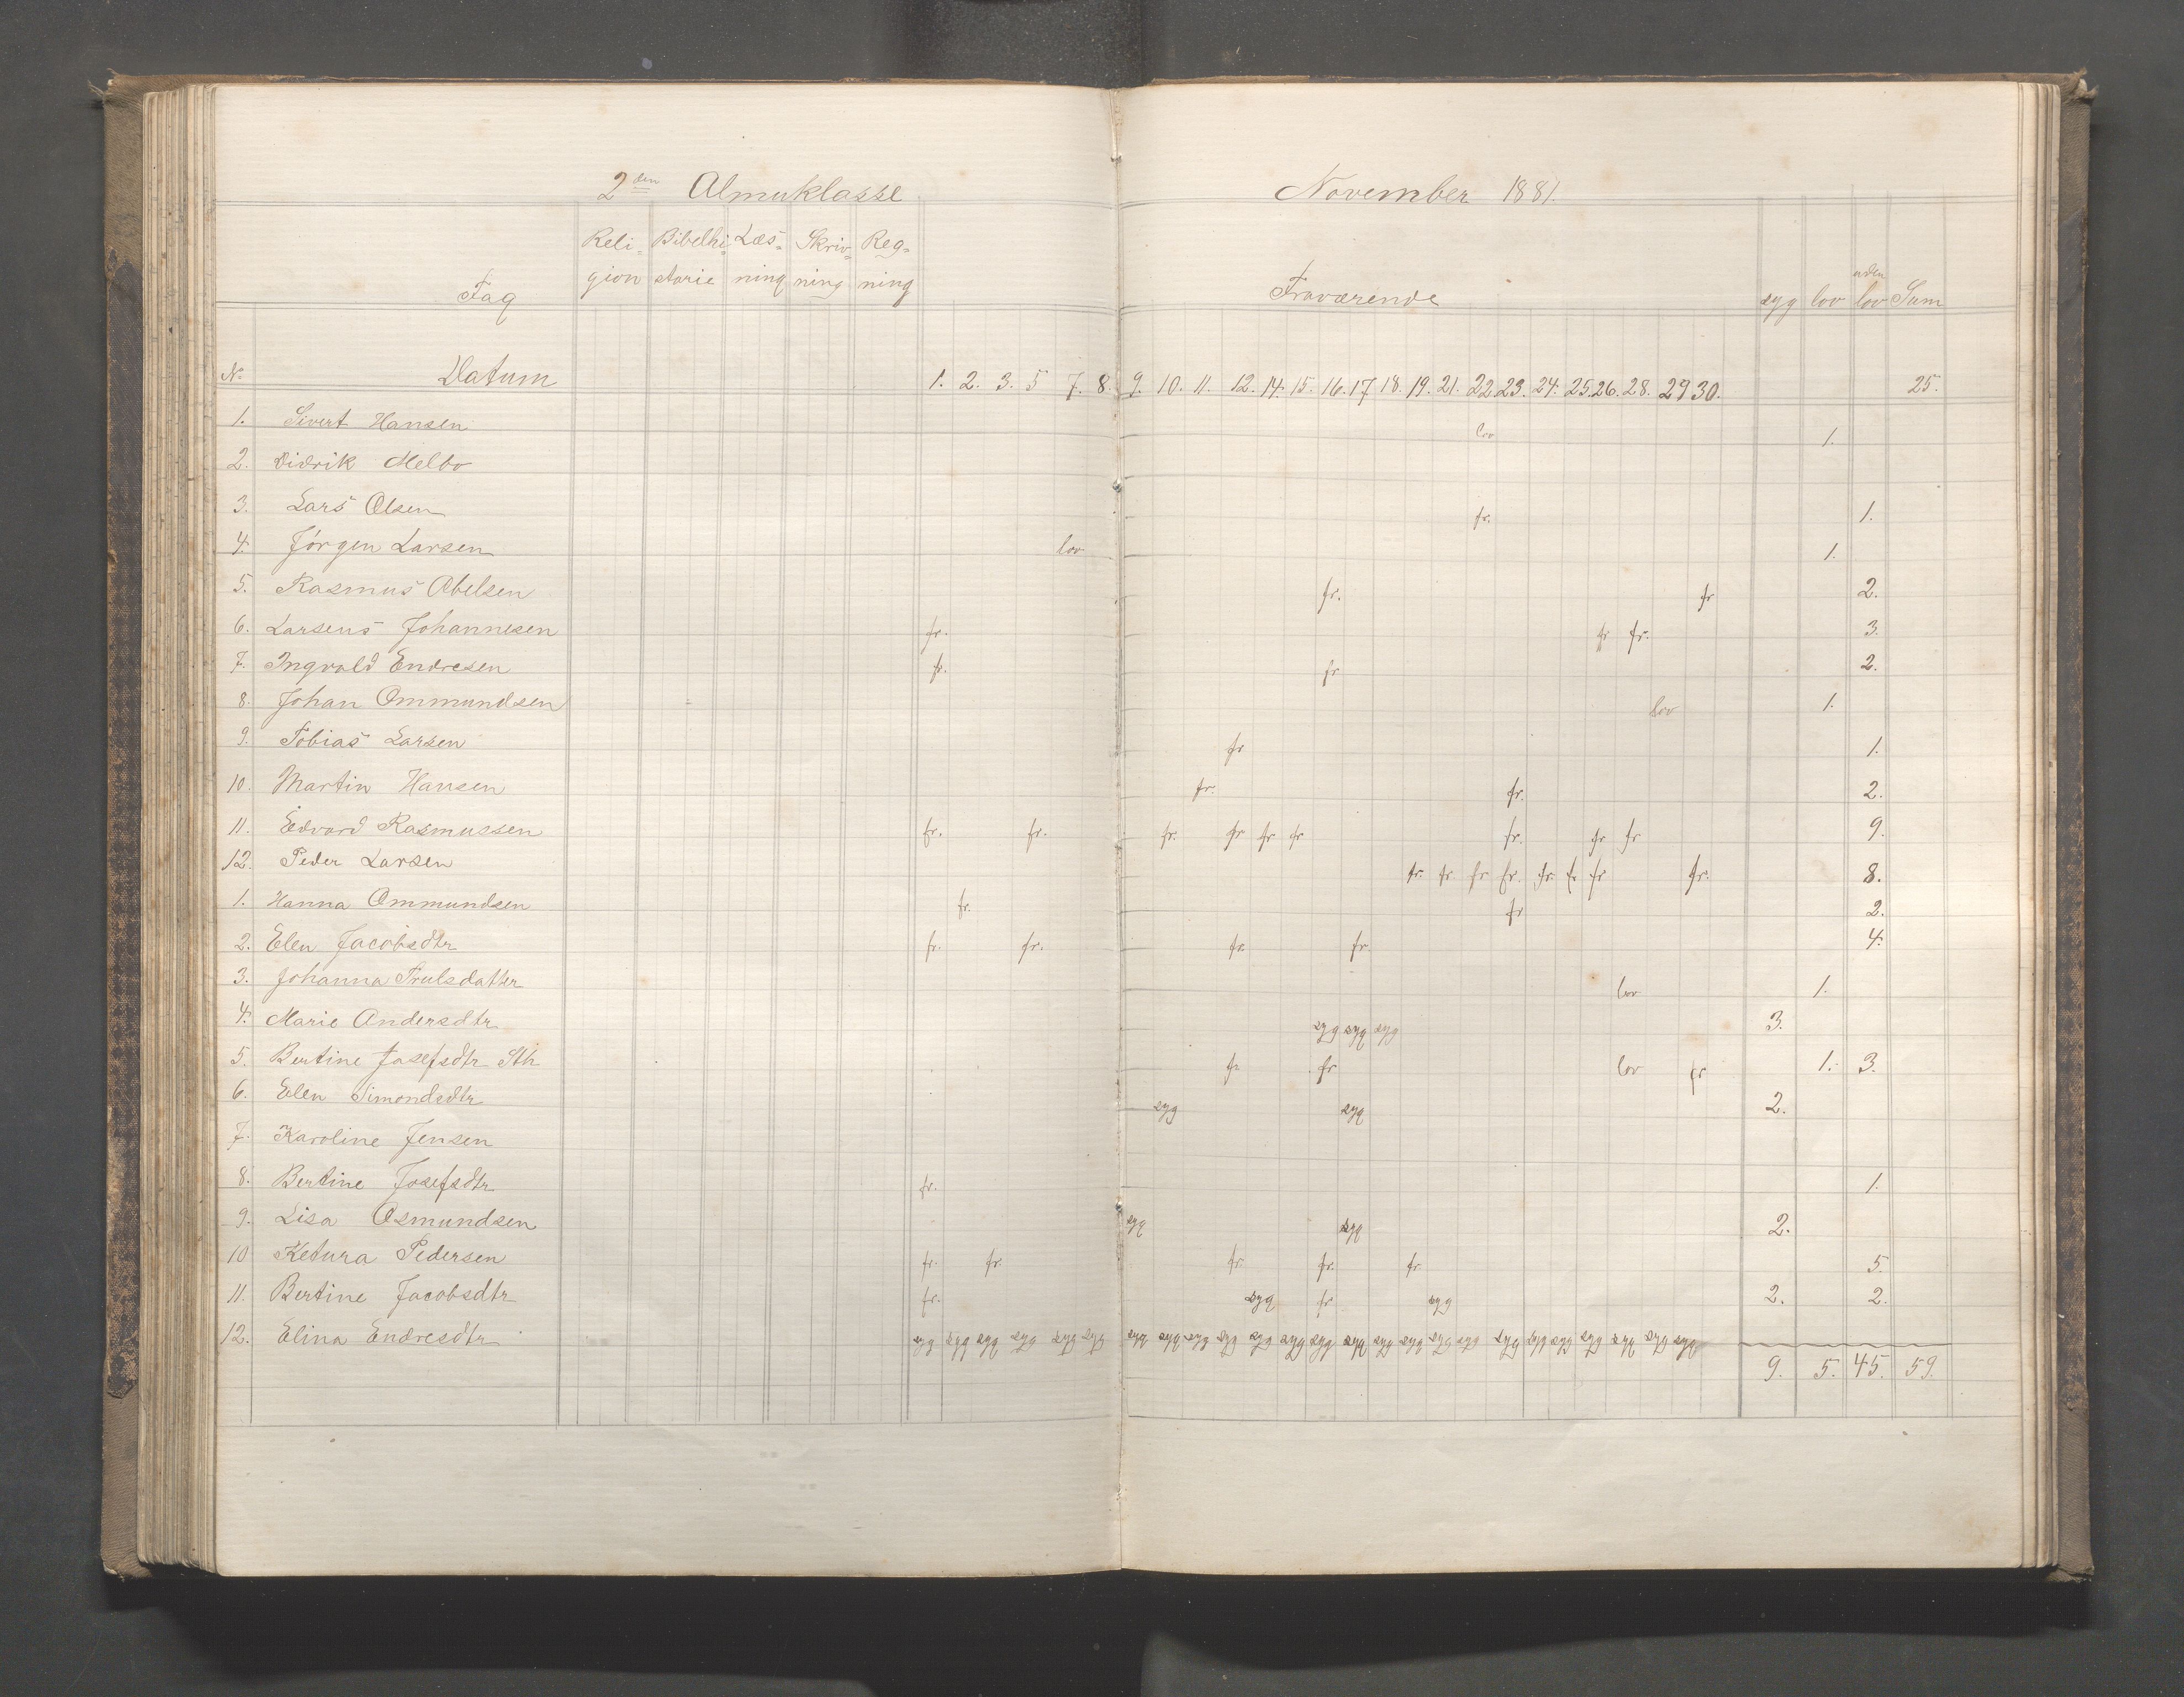 2den Almuklasse
November 1881.
Fag Reli= Bibelhi= Læs= Skriv= Reg=
gion storie ning ning ning Fraværende syg lov uden lov Sum
N. Datum 1. 2. 3. 5 7. 8. 9. 10. 11. 12. 14. 15. 16. 17. 18. 19. 21. 22. 23. 24. 25. 26. 28. 29 30. 25.
1. Sivert Hansen lov 1.
2. Didrik Melbo
3. Lars Olsen fr. 1.
4. Jørgen Larsen lov 1.
5. Rasmus Abelsen fr. fr 2.
6. Larsens Johannesen fr. fr fr. 3.
7. Ingvald Endresen fr. fr 2.
8. Johan Ommundsen lov 1.
9. Tobias Larsen fr 1.
10. Martin Hansen fr. fr. 2.
11. Edvard Rasmussen fr. fr. fr. fr fr fr fr. fr fr 9.
12. Peder Larsen fr. fr fr fr. fr. fr fr fr. 8.
1. Hanna Ommundsen fr. fr 2.
2. Elen Jacobsdtr fr. fr. fr. fr. 4.
3. Johanna Trulsdatter lov 1.
4. Marie Andersdtr syg syg syg 3.
5. Bertine Josefsdtr Sth fr fr lov fr 1. 3.
6. Elen Simondsdtr syg syg 2.
7. Karoline Jensen
8. Bertine Josefsdtr fr. 1.
9. Lisa Osmundsen syg syg 2.
10 Ketura Pedersen fr. fr. fr. fr. fr. 5.
11. Bertine Jacobsdtr fr. syg fr syg 2. 2.
12. Elina Endresdtr syg syg syg syg syg syg syg syg syg syg syg syg syg syg syg syg syg syg syg syg syg syg syg syg syg
9. 5. 45. 59.